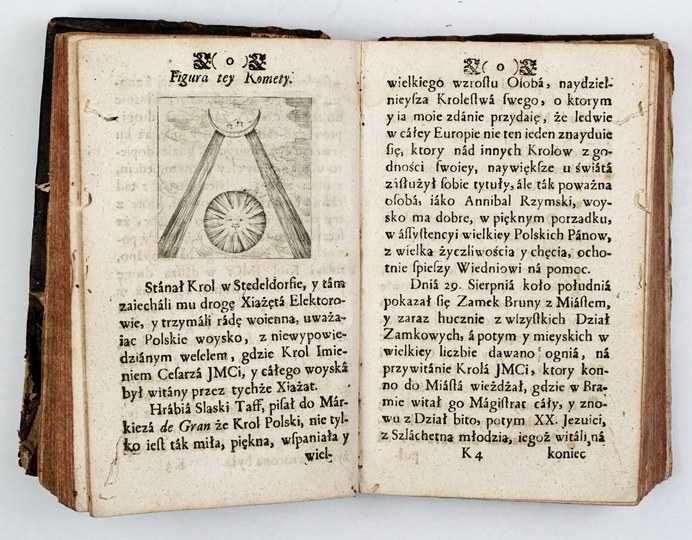 ( o )
Figura tey Komety.
Stánął Krol w Stedeldorfie, y tám
zaiecháli mu drogę Xiążętá Elektoro-
wie, y trzymáli rádę woienną, uważa-
iąc Polskie woysko, z niewypowie-
dziánym weselem, gdzie Krol Imie-
niem Cesarzá JMCi, y całego woyská
był witány przez tychże Xiążąt.
Hrábiá Slaski Taff, pisał do Már-
kiezá de Gran że Krol Polski, nie tyl-
ko iest ták miła, piękna, wspaniała y
wiel-
( o )
wielkiego wzrostu Osobá, naydziel-
nieysza Krolestwá swego, o ktorym
y ia moie zdánie przydaię, że ledwie
w cáłey Europie nie ten ieden znayduie
się, ktory nád innych Krolow z go-
dności swoiey, naywiększe u świátá
zásłużył sobie tytuły, ále ták poważna
osobá, iáko Annibal Rzymski, woy-
sko ma dobre, w pięknym porządku,
w ássystencyi wielkiey Polskich Pánow,
z wielka życzliwościa y chęcia, ocho-
tnie spieszy Wiedniowi ná pomoc.
Dniá 29. Sierpniá koło południá
pokazał się Zamek Bruny z Miástem,
y zaraz hucznie z wszystkich Dział
Zamkowych, á potym y mieyskich w
wielkiey liczbie dawano ogniá, ná
przywitánie Krolá JMCi, ktory kon-
no do Miástá wieżdżał, gdzie w Bra-
mie witał go Mágistrat cáły, y zno-
wu z Dział bito, potym XX. Jezuici,
z Szláchetna młodzia, iegoż witáli, ná
K 4 koniec